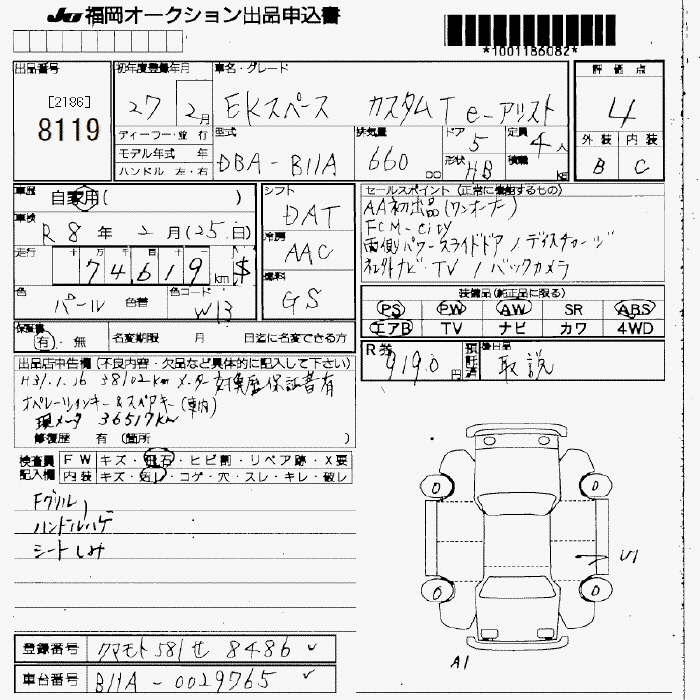 JU 福岡オークション出品申込書
*1001186082*
出品番号
[2186]
8119
初年度登録年月
27 2月
車名・グレード
EKスペース カスタムT e-アシスト
評価点
4
外装 内装
B C
ディーラー・並行
モデル年式 年
ハンドル 左・右
型式
DBA-B11A
排気量
660 cc
ドア 5
形状 HB
定員 4人
積載 kg
車歴
自家用( )
車検
R8年 2月(25日)
走行
74619 km $
色
パール
色替
色コード
W13
シフト
DAT
冷房
AAC
燃料
GS
セールスポイント(正常に機能するもの)
AA初出品(ワンオーナー)
FCM-City
両側パワースライドドア / ディスチャージ
社外ナビ・TV / バックカメラ
装備品(純正品に限る)
PS PW AW SR ABS
エアB TV ナビ カワ 4WD
保証書
有・無
名変期限 月 日迄に名変できる方
R券
9190円
預託済
後日品
取説
出品店申告欄(不良内容・欠品など具体的に記入して下さい)
H31.1.16 38102km メーター交換歴保証書有
オペレーションキー&スペアキー(車内)
現メータ 36517km
修復歴 有(箇所 )
検査員記入欄
FW キズ・飛石・ヒビ割・リペア跡・X要
内装 キズ・汚レ・コゲ・穴・スレ・キレ・破レ
Fグリル
ハンドルハゲ
シートしみ
0 0
U1
0 0
A1
登録番号 クマモト581せ 8486
車台番号 B11A-0029765